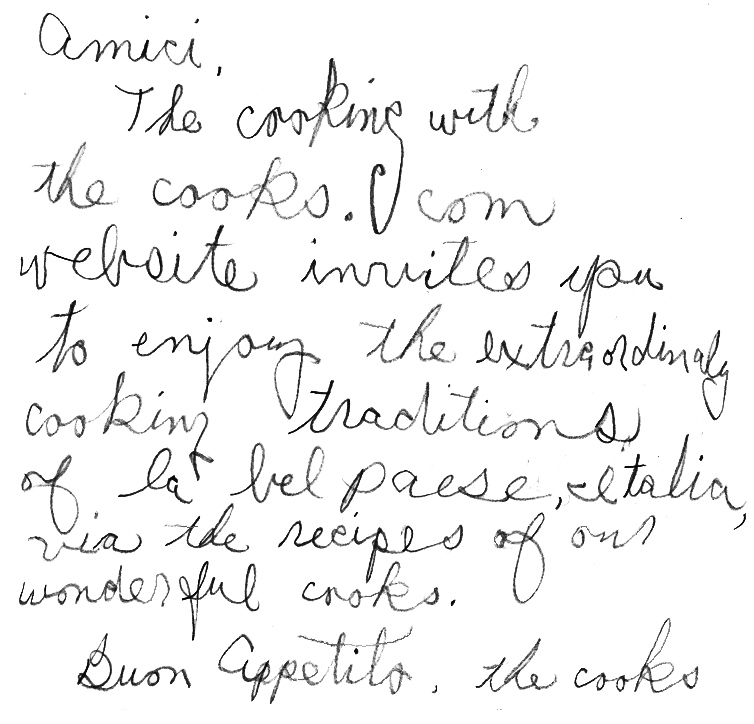 Amici,
The cooking with
the cooks. com
website invites you
to enjoy the extraordinary
cooking traditions
of la bel paese, Italia,
via the recipes of our
wonderful cooks.
Buon Appetito, the cooks